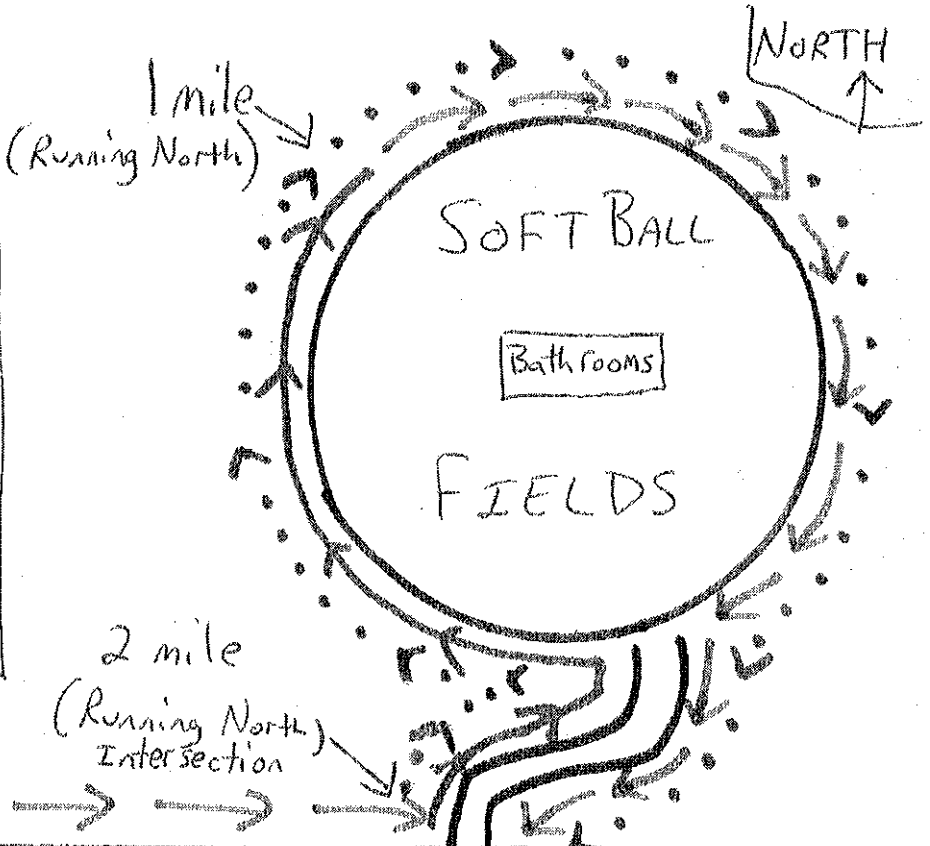 NORTH
1 mile
(Running North)
SOFTBALL
Bathrooms
FIELDS
2 mile
(Running North)
Intersection